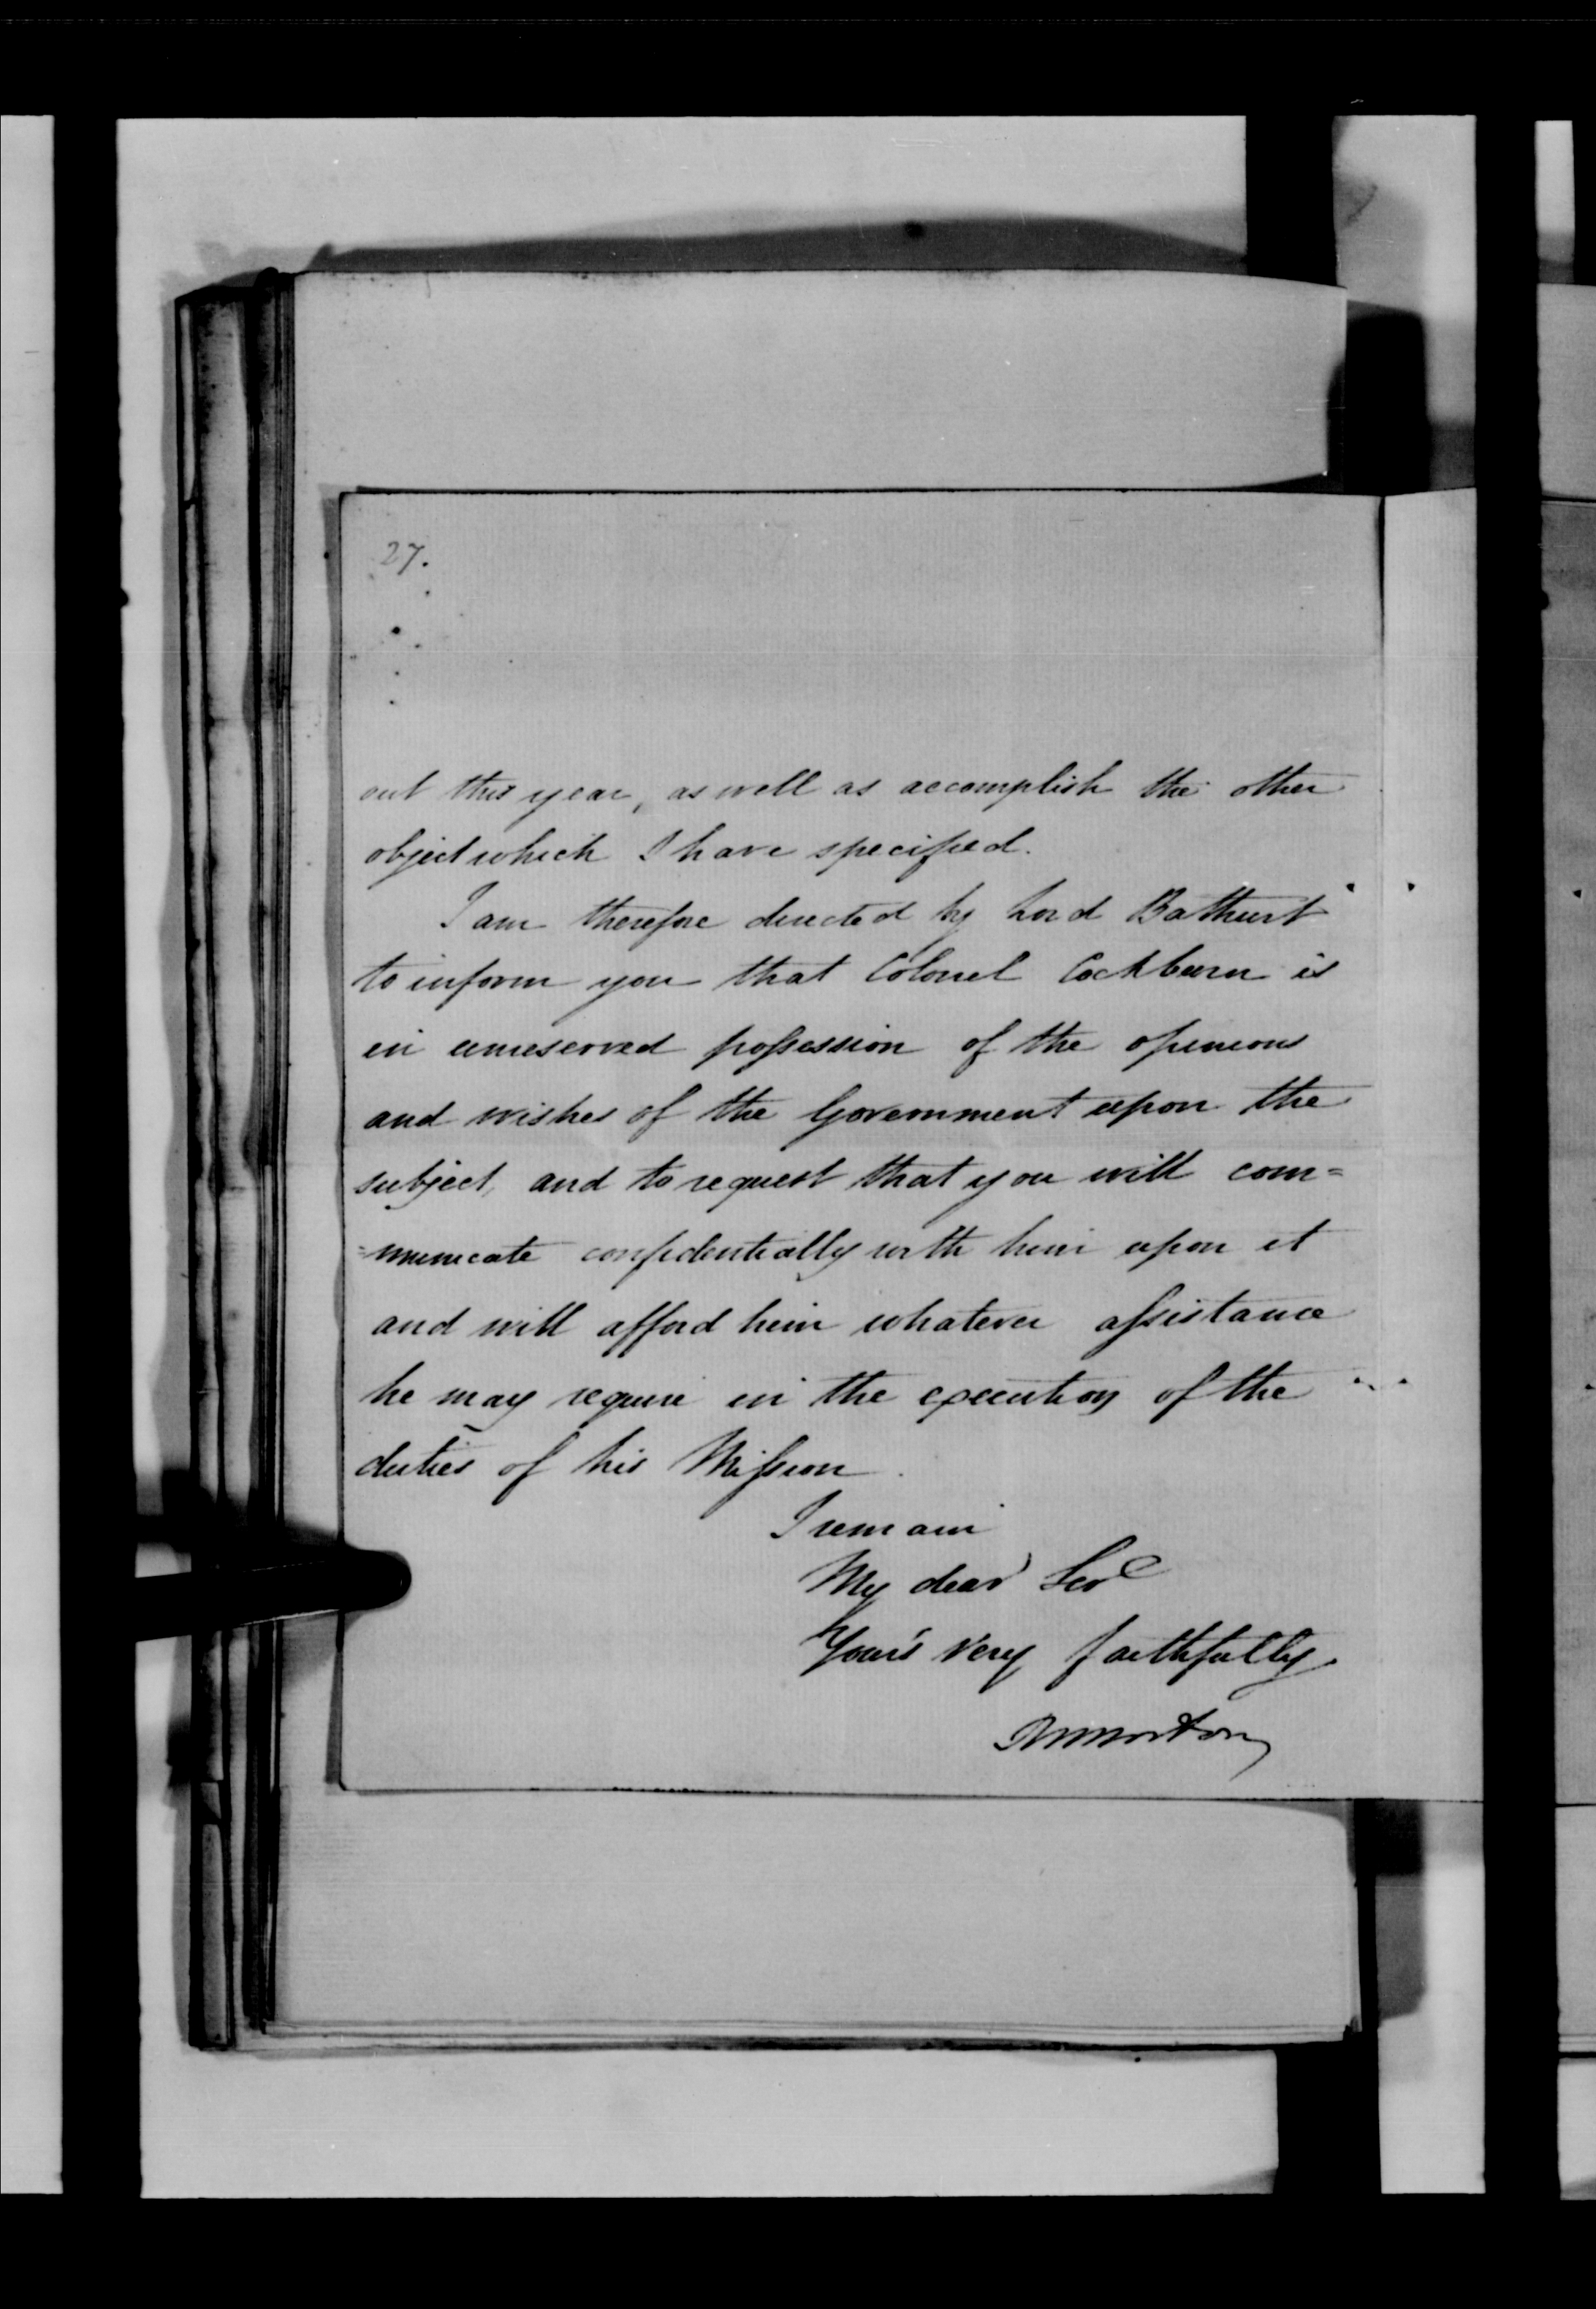 27.
out this year, as well as accomplish the other
object which I have specified.
I am therefore directed by Lord Bathurst
to inform you that Colonel Cockburn is
in unreserved possession of the opinions
and wishes of the Government upon the
subject, and to request that you will com=
=municate confidentially with him upon it
and will afford him whatever assistance
he may require in the execution of the
duties of his Mission.
I remain
My dear Sir
Yours very faithfully
RWHorton